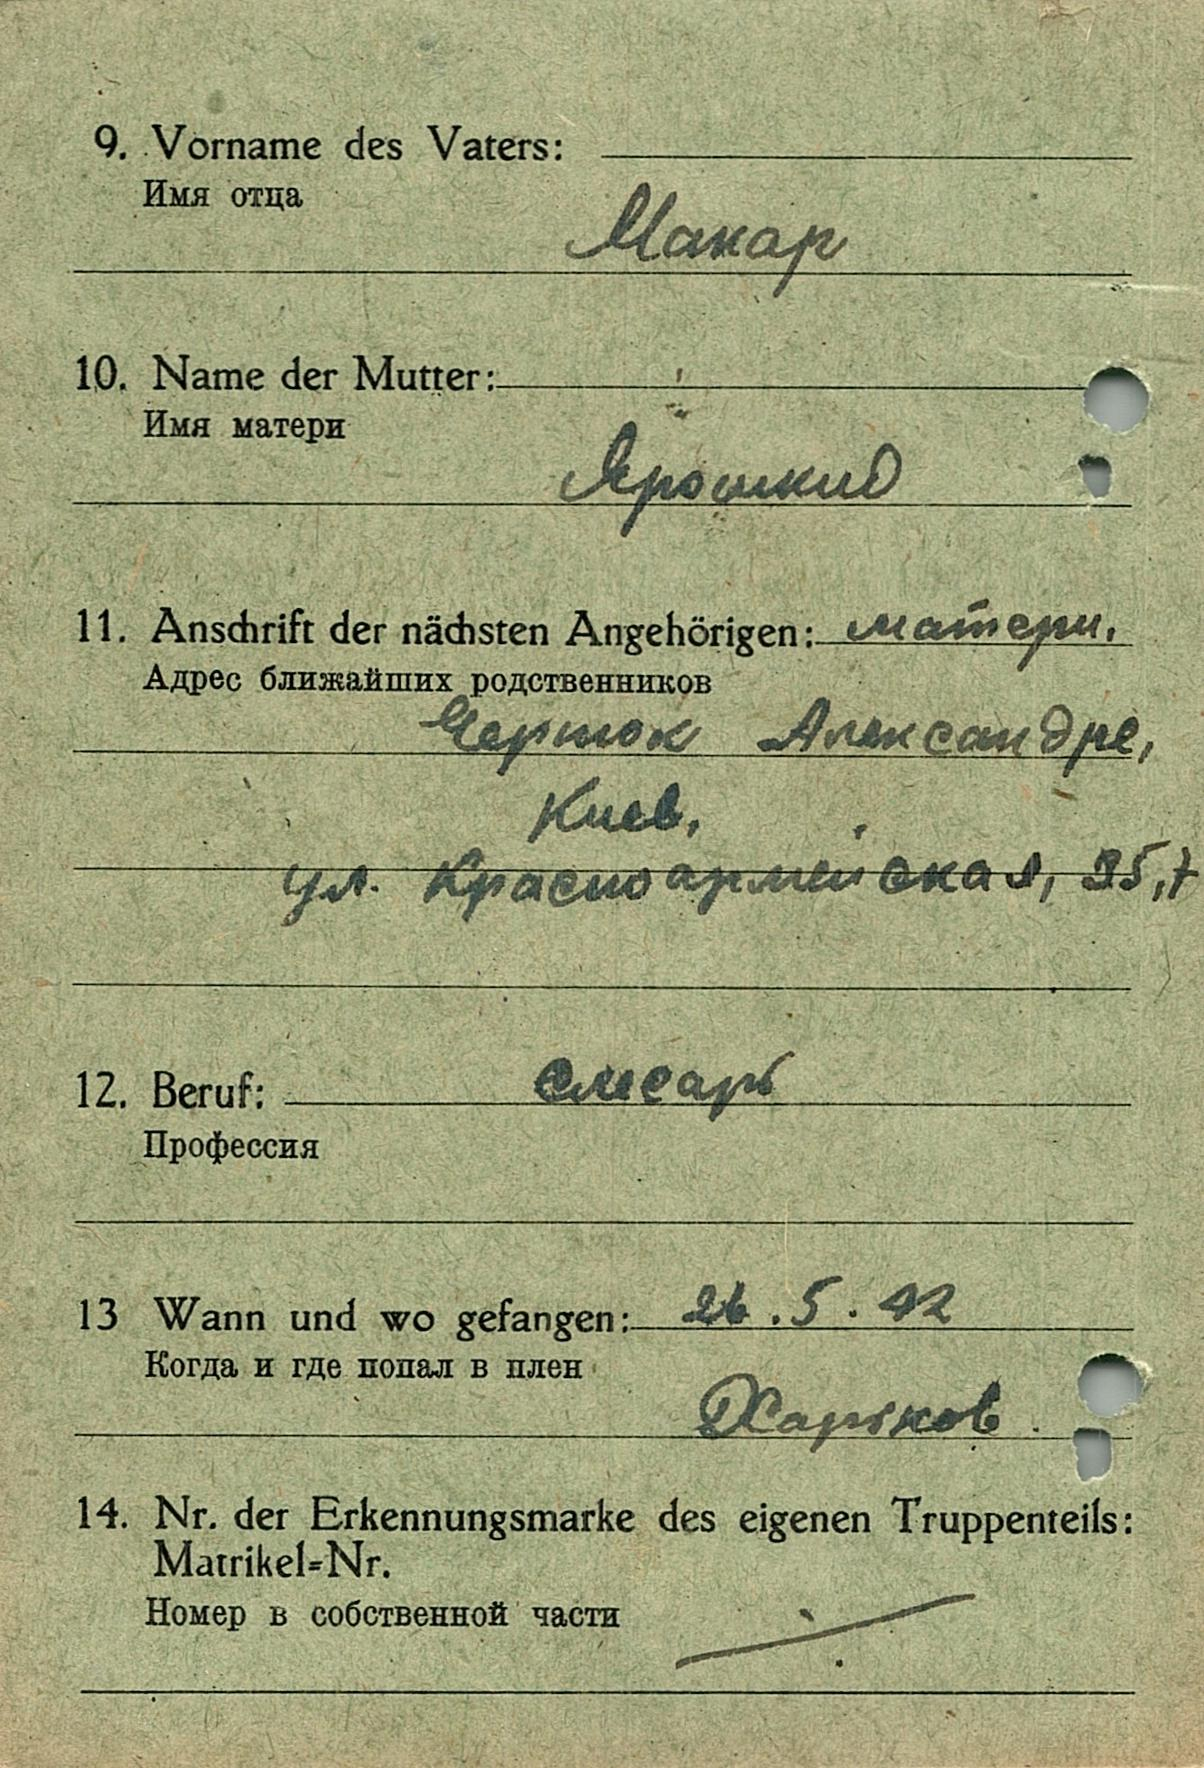 9. Vorname des Vaters:
Имя отца
Макар
10. Name der Mutter:
Имя матери
11. Anschrift der nächsten Angehörigen: матери.
Адрес ближайших родственников
Черток Александре,
Киев,
ул. Красноармейская, 35,7
12. Beruf: слесарь
Профессия
13 Wann und wo gefangen: 26.5.42
Когда и где попал в плен
Харьков.
14. Nr. der Erkennungsmarke des eigenen Truppenteils:
Matrikel=Nr.
Номер в собственной части